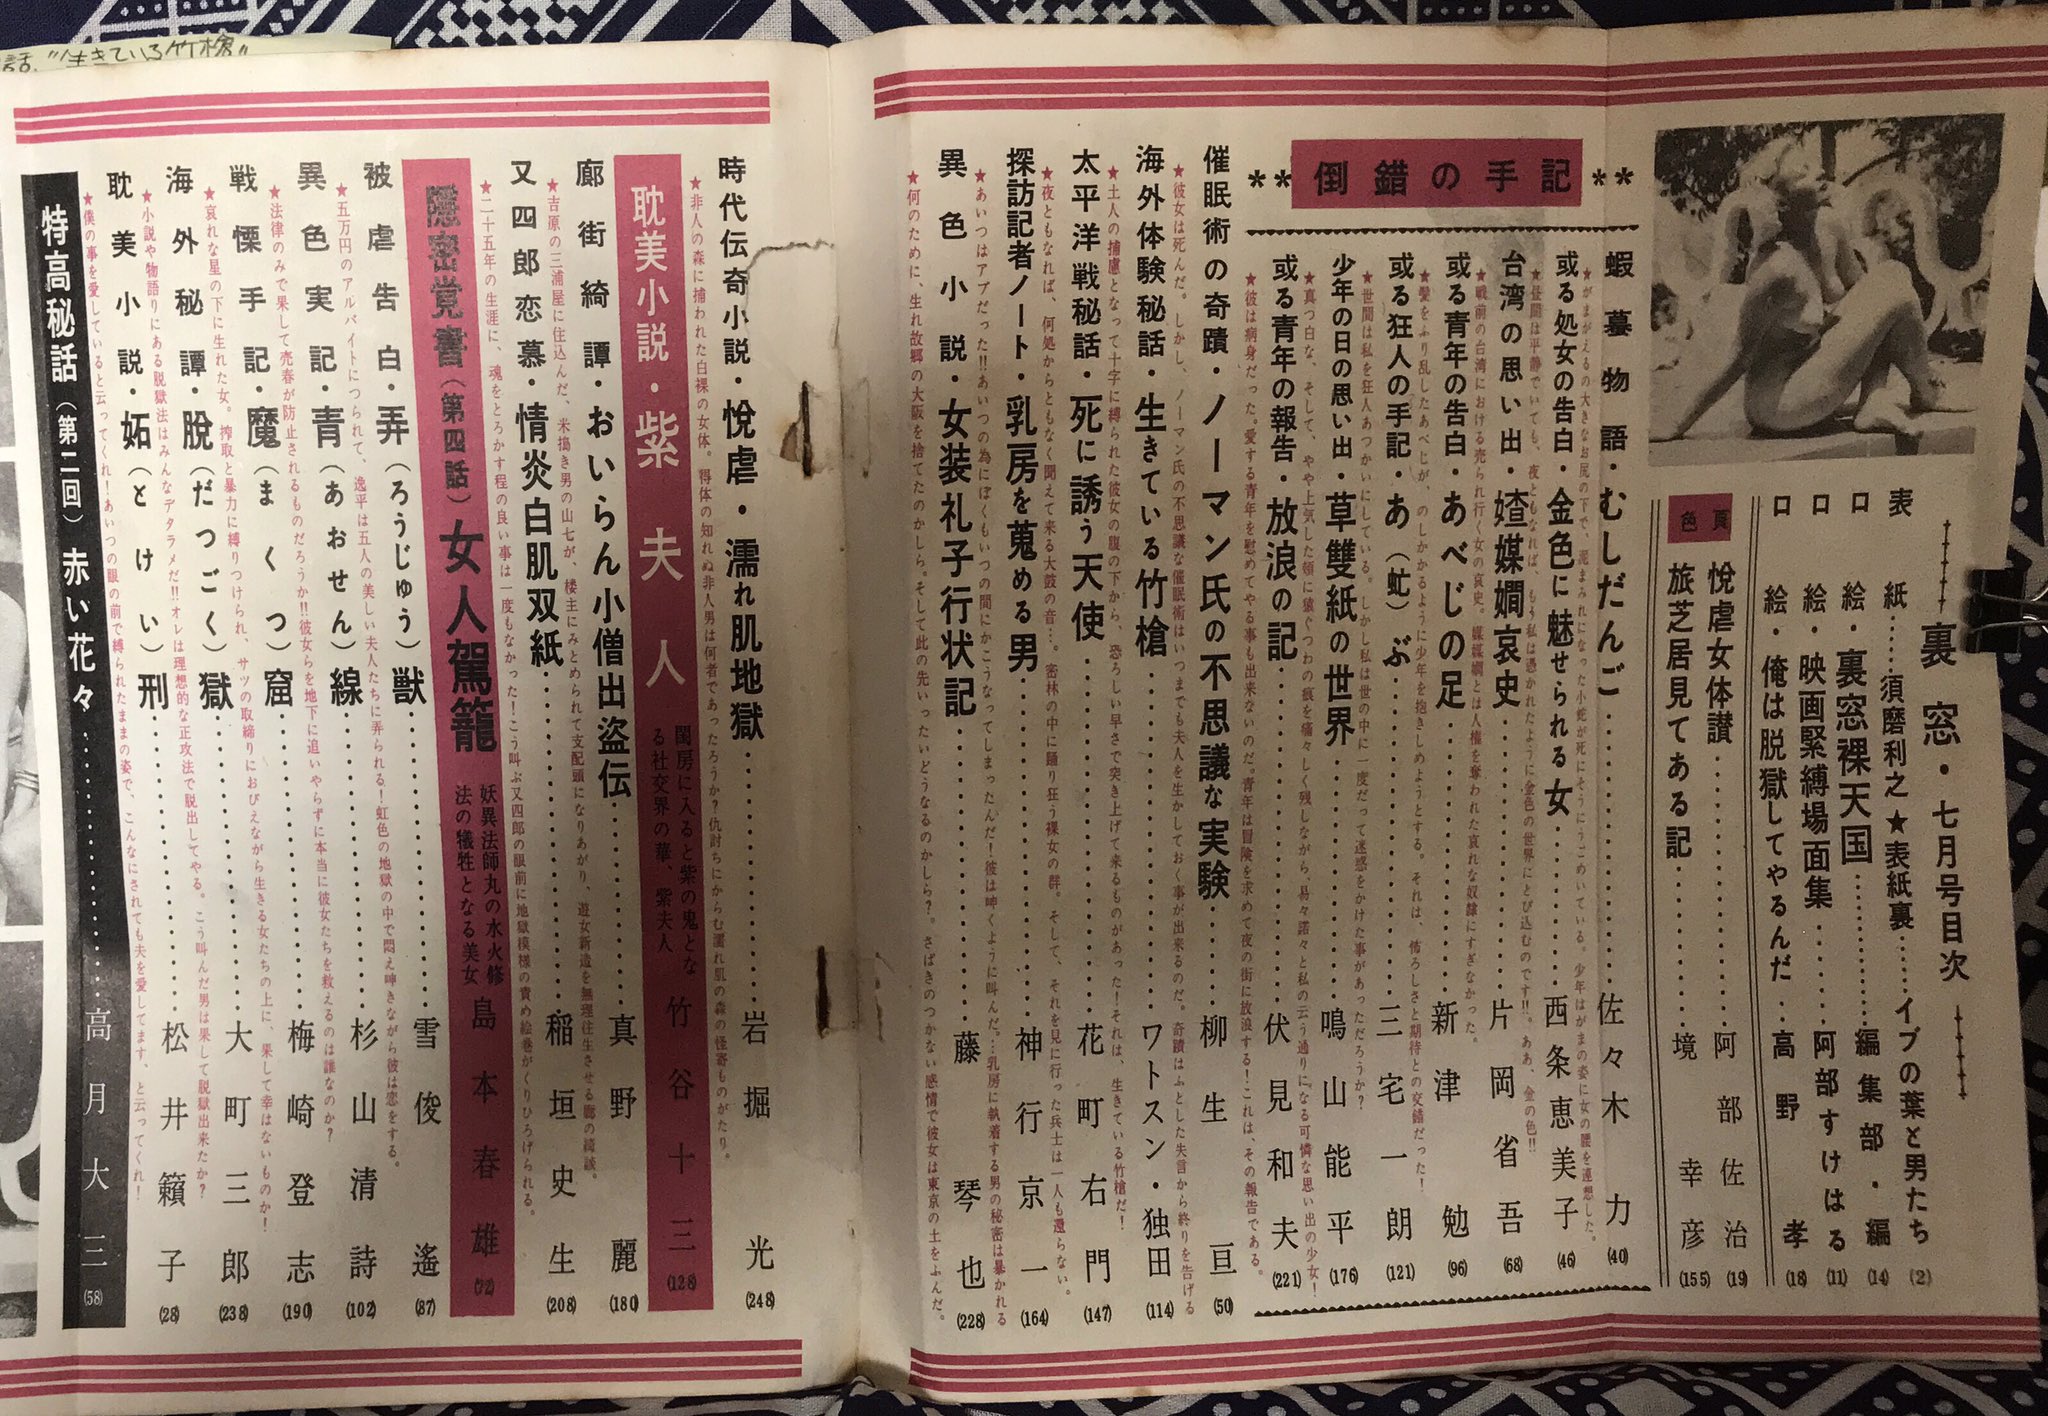 裏窓・七月号目次
表紙……須磨利之★表紙裏……イブの葉と男たち (2)
口絵・裏窓裸天国……編集部・編 (14)
口絵・映画緊縛場面集……阿部すけはる (11)
口絵・俺は脱獄してやるんだ…高野孝 (18)
色頁
悦虐女体讃……阿部佐治 (19)
旅芝居見てある記……境幸彦 (155)
**倒錯の手記**
蝦蟇物語・むしだんご……佐々木力 (40)
★がまがえるの大きなお尻の下で、泥まみれになった小蛇が死にそうにうごめいている。少年はがまの姿に女の腰を連想した。
或る処女の告白・金色に魅せられる女……西条恵美子 (46)
★昼間は平静でいても、夜ともなれば、もう私は憑かれたように金色の世界にとび込むのです!!。ああ、金の色!!
台湾の思い出・媎媒嫺哀史……片岡省吾 (68)
★戦前の台湾における売られ行く女の哀史。媎媒嫺とは人権を奪われた哀れな奴隷にすぎなかった。
或る青年の告白・あべじの足……新津勉 (96)
★髪をふり乱したあべじが、のしかかるように少年を抱きしめようとする。それは、怖ろしさと期待との交錯だった!
或る狂人の手記・あ(虻)ぶ……三宅一朗 (121)
★世間は私を狂人あつかいにしている。しかし私は世の中に一度だって迷惑をかけた事があっただろうか?
少年の日の思い出・草雙紙の世界……鳴山能平 (176)
★真っ白な、そして、やや上気した頬に猿ぐつわの痕を痛々しく残しながら、易々諾々と私の云う通りになる可憐な思い出の少女!
或る青年の報告・放浪の記……伏見和夫 (221)
★彼は病身だった。愛する青年を慰めてやる事も出来ないのだ。青年は冒険を求めて夜の街に放浪する!これは、その報告である。
催眠術の奇蹟・ノーマン氏の不思議な実験……柳生亘 (50)
★彼女は死んだ。しかし、ノーマン氏の不思議な催眠術はいつまでも夫人を生かしておく事が出来るのだ。奇蹟はふとした失言から終りを告げる
海外体験秘話・生きている竹槍……ワトスン・独田 (114)
★土人の捕虜となって十字に縛られた彼女の腹の下から、恐ろしい早さで突き上げて来るものがあった!それは、生きている竹槍だ!
太平洋戦秘話・死に誘う天使……花町右門 (147)
★夜ともなれば、何処からともなく聞えて来る太鼓の音…。密林の中に踊り狂う裸女の群。そして、それを見に行った兵士は一人も還らない。
探訪記者ノート・乳房を蒐める男……神行京一 (164)
★あいつはアブだった!!あいつの為にぼくもいつの間にかこうなってしまったんだ!彼は呻くように叫んだ。…乳房に執着する男の秘密は暴かれる
異色小説・女装礼子行状記……藤琴也 (228)
★何のために、生れ故郷の大阪を捨てたのかしら。そして此の先いったいどうなるのかしら?。さばきのつかない感情で彼女は東京の土をふんだ。
時代伝奇小説・悦虐・濡れ肌地獄……岩堀光 (248)
★非人の森に捕われた白裸の女体。得体の知れぬ非人男は何者であったろうか?仇討ちにからむ濡れ肌の森の怪奇ものがたり。
耽美小説・紫夫人 閨房に入ると紫の鬼となる社交界の華、紫夫人 竹谷十三 (128)
廓街綺譚・おいらん小僧出盗伝……真野麗 (180)
★吉原の三浦屋に住込んだ、米搗き男の山七が、楼主にみとめられて支配頭になりあがり、遊女新造を無理往生させる廓の綺談。
又四郎恋慕・情炎白肌双紙……稲垣史生 (208)
★二十五年の生涯に、魂をとろかす程の良い事は一度もなかった!こう叫ぶ又四郎の眼前に地獄模様の責め絵巻がくりひろげられる。
隠密覚書(第四話)女人駕籠 妖異法師丸の水火修法の犠牲となる美女 島本春雄 (72)
被虐告白・弄(ろうじゅう)獣……雪俊遙 (87)
★五万円のアルバイトにつられて、逸平は五人の美しい夫人たちに弄られる!虹色の地獄の中で悶え呻きながら彼は恋をする。
異色実記・青(あおせん)線……杉山清詩 (102)
★法律のみで果して売春が防止されるものだろうか!!彼女らを地下に追いやらずに本当に彼女たちを救えるのは誰なのか?
戦慄手記・魔(まくつ)窟……梅崎登志 (190)
★哀れな星の下に生れた女。搾取と暴力に縛りつけられ、サツの取締りにおびえながら生きる女たちの上に、果して幸はないものか!
海外秘譚・脱(だつごく)獄……大町三郎 (238)
★小説や物語りにある脱獄法はみんなデタラメだ!!オレは理想的な正攻法で脱出してやる。こう叫んだ男は果して脱獄出来たか?
耽美小説・妬(とけい)刑……松井籟子 (28)
★僕の事を愛していると云ってくれ!あいつの眼の前で縛られたままの姿で、こんなにされても夫を愛してます、と云ってくれ!
特高秘話(第二回)赤い花々……高月大三 (58)
話、"生きている竹槍"